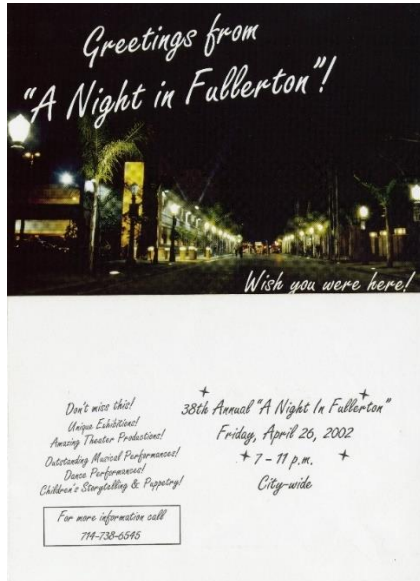 Greetings from
"A Night in Fullerton"!
Wish you were here!
Don't miss this!
Unique Exhibitions!
Amazing Theater Productions!
Outstanding Musical Performances!
Dance Performances!
Children's Storytelling & Puppetry!
For more information call
714-738-6545
38th Annual "A Night In Fullerton"
Friday, April 26, 2002
7 - 11 p.m.
City-wide